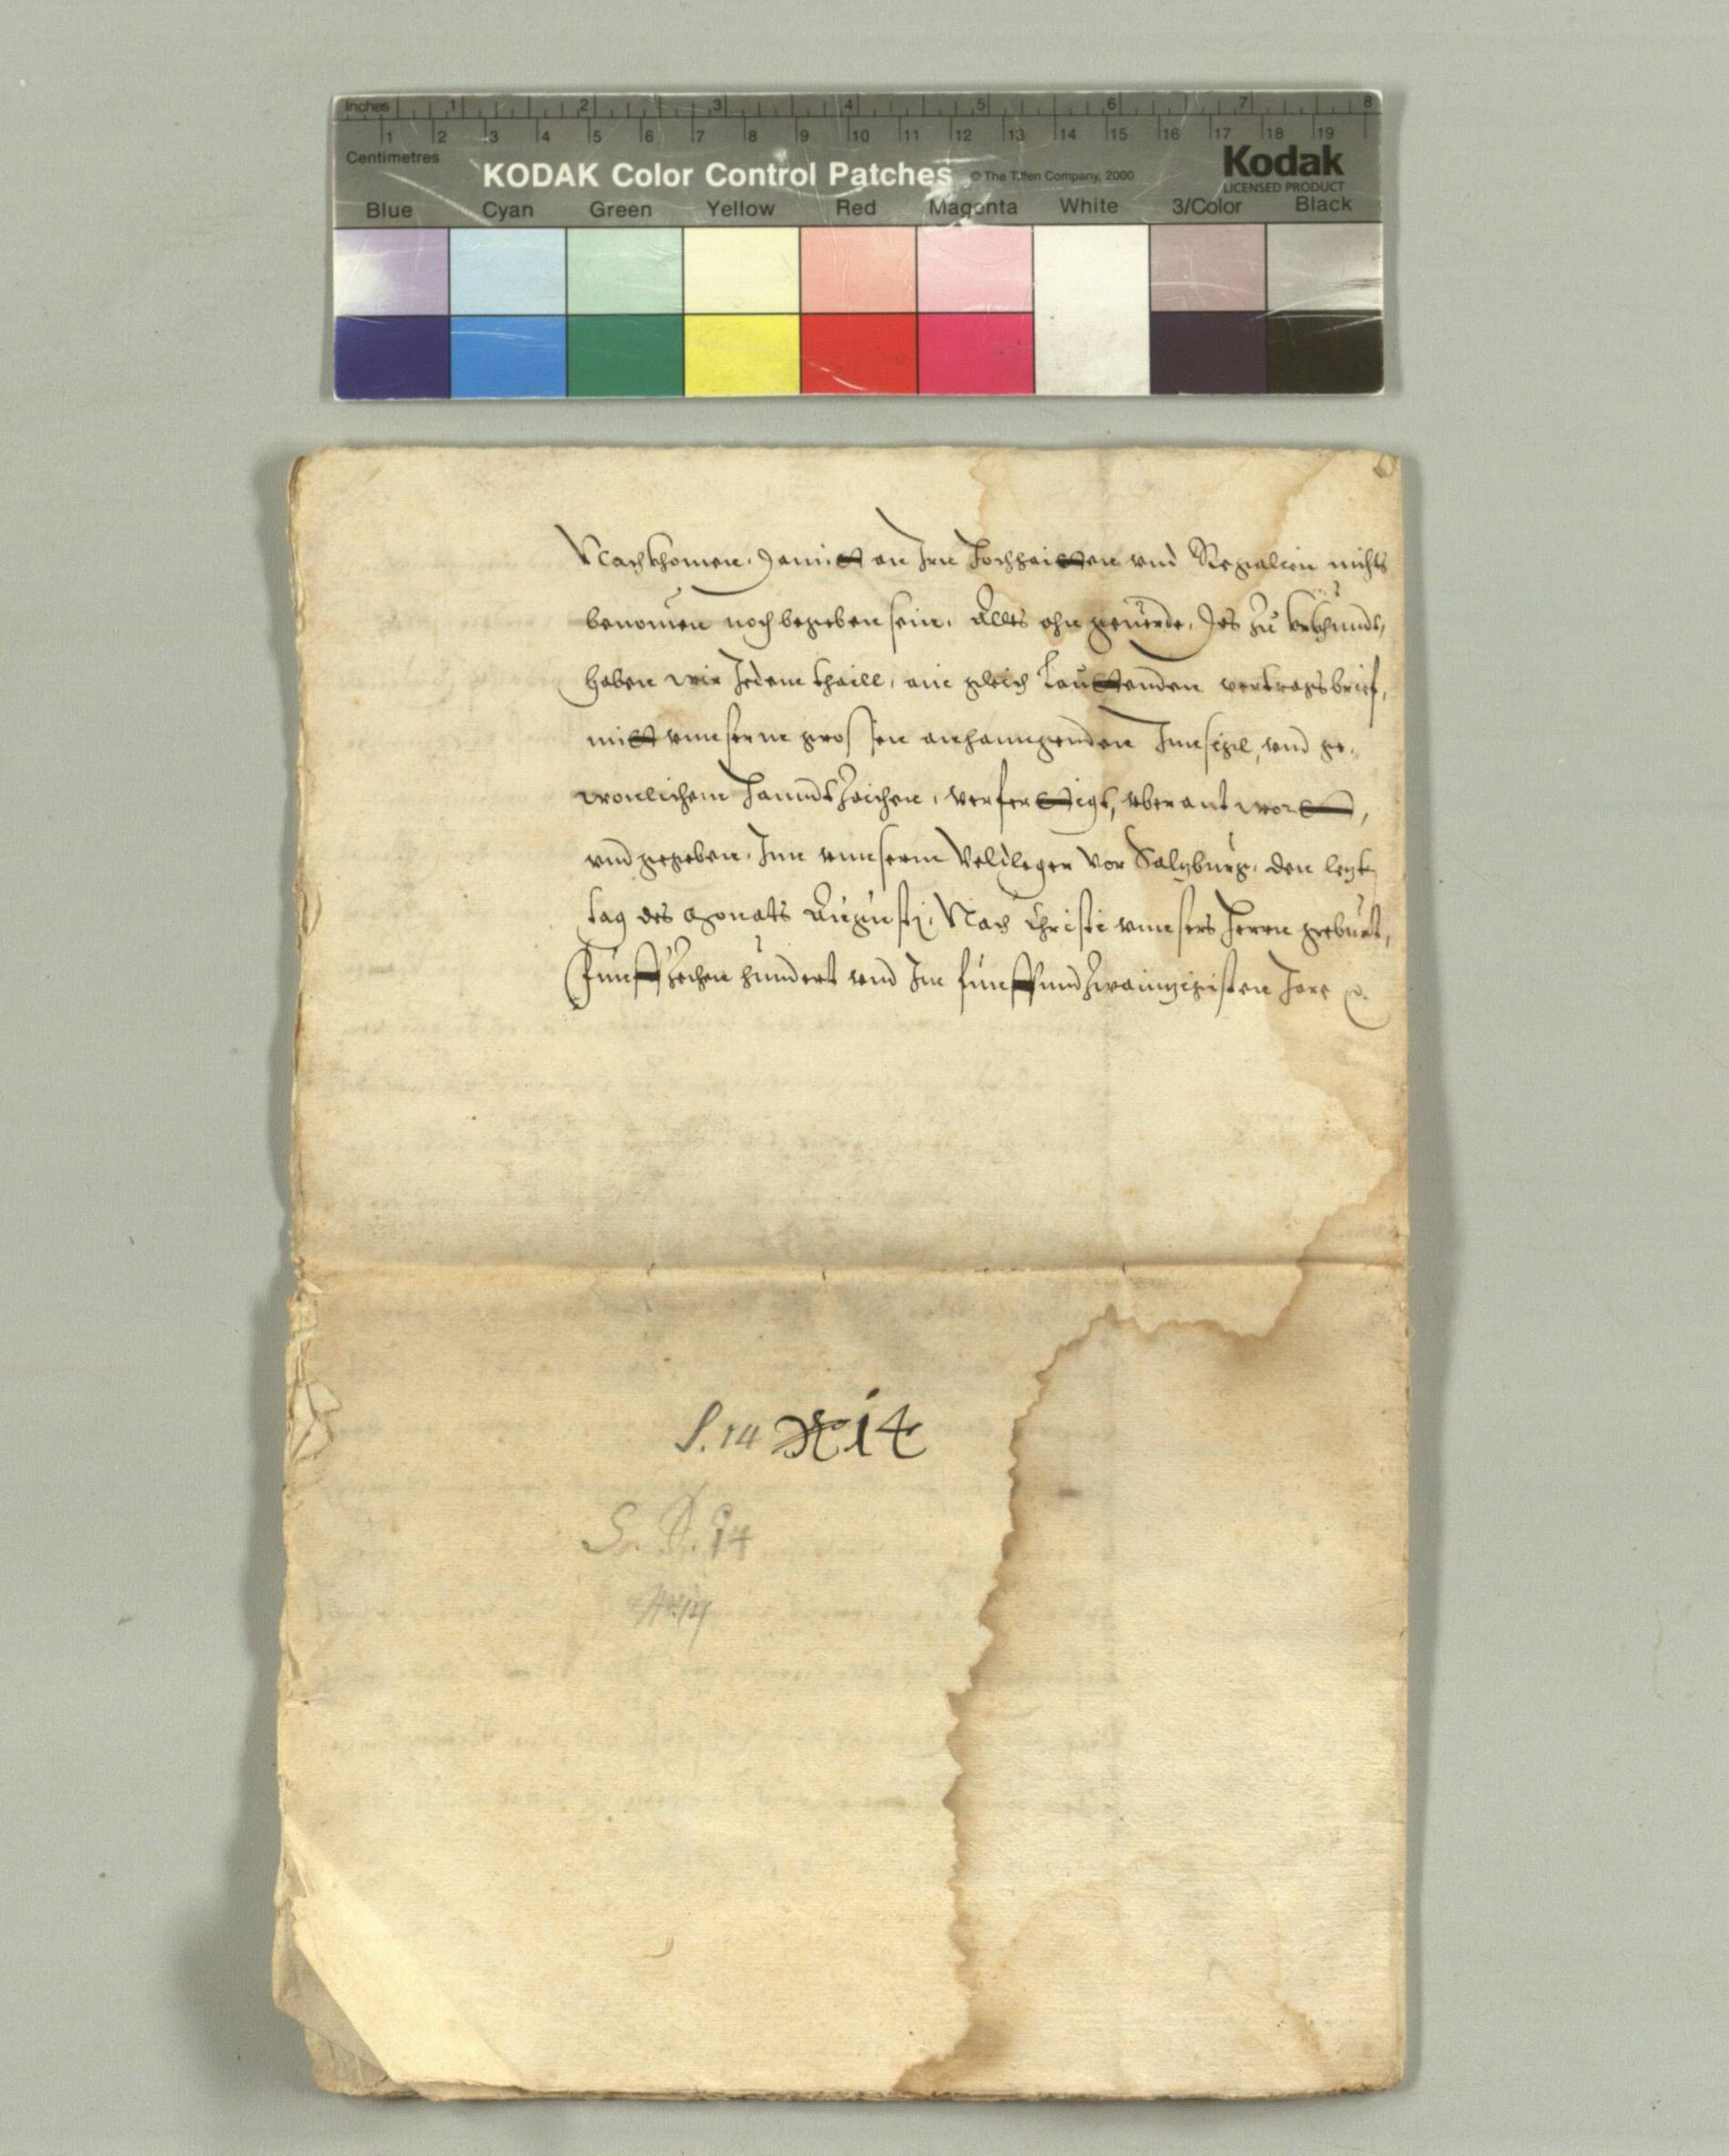 Inches 1 2 3 4 5 6 7 8
1 2 3 4 5 6 7 8 9 10 11 12 13 14 15 16 17 18 19
Centimetres
KODAK Color Control Patches © The Tiffen Company, 2000 Kodak
LICENSED PRODUCT
Blue Cyan Green Yellow Red Magenta White 3/Color Black
Nachkhomen, damitt an Iren Hochhaitten vnd Regalien nichts
benomen noch begeben sein. Alles ohn geuerde. Des zu vrkhundt,
haben wir Jedem thaill, ain gleich Lauttenden vertragsbrief,
mitt vnnserm grossen anhanngenden Innsigl, vnd ge,
wonlichem Hanndtzaichen, verferttigt, vberantwortt,
vnd gegeben. Inn vnnserm Veldleger vor Salzburg, den letzt
tag des Monats Augusti, Nach Christi vnnsers Herrn geburt,
Funffzechen hundert vnd Im funffundzwainzigisten Jare
S. 14 14
S. D. 14
No. 14